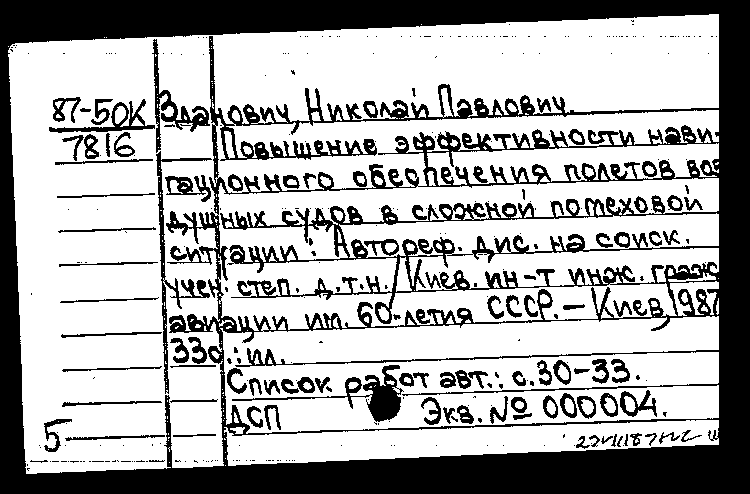 87-50К
7816
Зданович, Николай Павлович.
Повышение эффективности нави-
гационного обеспечения полетов воз
душных судов в сложной помеховой
ситуации : Автореф. дис. на соиск.
учен. степ. д.т.н. / Киев. ин-т инж. граж
авиации им. 60-летия СССР. – Киев, 1987
33с.: ил.
Список работ авт.: с.30-33.
ДСП Экз. № 000004.
5